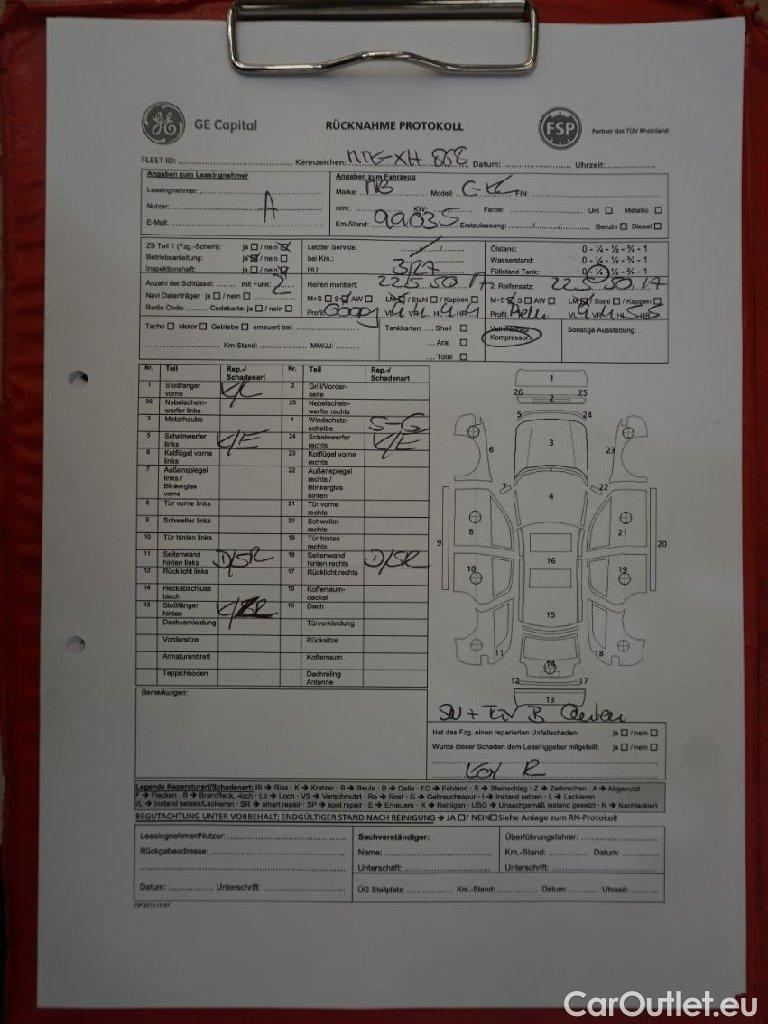 GE Capital RÜCKNAHME PROTOKOLL FSP Partner des TÜV Rheinland
FLEET ID: Kennzeichen: MTK-XH 868 Datum: Uhrzeit:
Angaben zum Leasingnehmer Angaben zum Fahrzeug
Leasingnehmer: Marke: MB Modell: FIN:
Nutzer: A ccm: KW: Farbe: Uni ☐ Metallic ☐
E-Mail: Km-Stand: 99035 Erstzulassung: Benzin ☐ Diesel ☐
ZB Teil 1 (Fzg.-Schein): ja ☐ / nein ☒ Letzter Service: / Ölstand: 0 - ¼ - ½ - ¾ - 1
Betriebsanleitung: ja ☒ / nein ☐ bei Km.: Wasserstand: 0 - ¼ - ½ - ¾ - 1
Inspektionsheft: ja ☐ / nein ☒ HU: 3/27 Füllstand Tank: 0 - ¼ - ½ - ¾ - 1
Anzahl der Schlüssel: mit Funk: 2 Reifen montiert: 225 50 17 2. Reifensatz: 225 50 17
Navi Datenträger: ja ☐ / nein ☐ M+S ☐ S AW ☐ LM / Stahl ☐ / Kappen ☐ M+S S ☐ AW ☐ LM / Stahl ☐ / Kappen ☐
Radio Code: Codekarte: ja ☐ / nein ☐ Profil: VL 4 VR 4 HL 4 HR 4 Profil: VL 4 VR 4 HL 5 HR 5
Tacho ☐ Motor ☐ Getriebe ☐ erneuert bei: Tankkarten: Shell ☐ Voll-/Notrad Sonstige Ausstattung:
Aral ☐ Kompressor
Km Stand: MM/JJ: Total ☐
Nr. Teil Rep.-/Schadenart Nr. Teil Rep.-/Schadenart
1 Stoßfänger vorne K/L 2 Grill/Vorderseite
26 Nebelscheinwerfer links 25 Nebelscheinwerfer rechts
3 Motorhaube 4 Windschutzscheibe S-G
5 Scheinwerfer links K/E 24 Scheinwerfer rechts K/E
6 Kotflügel vorne links 23 Kotflügel vorne rechts
7 Außenspiegel links / Blinkerglas vorne 22 Außenspiegel rechts / Blinkerglas hinten
8 Tür vorne links 21 Tür vorne rechts
9 Schweller links 20 Schweller rechts
10 Tür hinten links 19 Tür hinten rechts
11 Seitenwand hinten links D/SR 18 Seitenwand hinten rechts D/SR
12 Rücklicht links 17 Rücklicht rechts
14 Heckabschlussblech 15 Kofferraumdeckel
13 Stoßfänger hinten 16 Dach
Dachverkleidung Türverkleidung
Vordersitze Rücksitze
Armaturenbrett Kofferraum
Teppichboden Dachreling Antenne
1
26 2 25
5 24
6 3 23
7 22
4
8 21
9 16 20
10 19
15
11 14 18
12 17
13
Bemerkungen:
Hat das Fzg. einen reparierten Unfallschaden: ja ☐ / nein ☐
Wurde dieser Schaden dem Leasinggeber mitgeteilt: ja ☐ / nein ☐
Legende Reparaturart/Schadenart: RI → Riss - K → Kratzer - B → Beule - D → Delle - FD → Fehlend - S → Steinschlag - Z → Zerbrochen - A → Abgenutzt
F → Flecken - B → Brandfleck, -loch - Lo → Loch - VS → Verschmutzt - Ro → Rost - G → Gebrauchsspur - I → Instand setzen - L → Lackieren
I/L → Instand setzen/Lackieren - SR → smart repair - SP → spot repair - E → Erneuern - R → Reinigen - USG → Unsachgemäß instand gesetzt - N → Nachlackiert
BEGUTACHTUNG UNTER VORBEHALT; ENDGÜLTIGER STAND NACH REINIGUNG → JA ☐ / NEIN ☐ Siehe Anlage zum RN-Protokoll
Leasingnehmer/Nutzer: Sachverständiger: Überführungsfahrer:
Rückgabeadresse: Name: Km.-Stand: Datum:
Unterschrift: Unterschrift:
Datum: Unterschrift: ÜG Stellplatz: Km.-Stand: Datum: Uhrzeit:
CarOutlet.eu